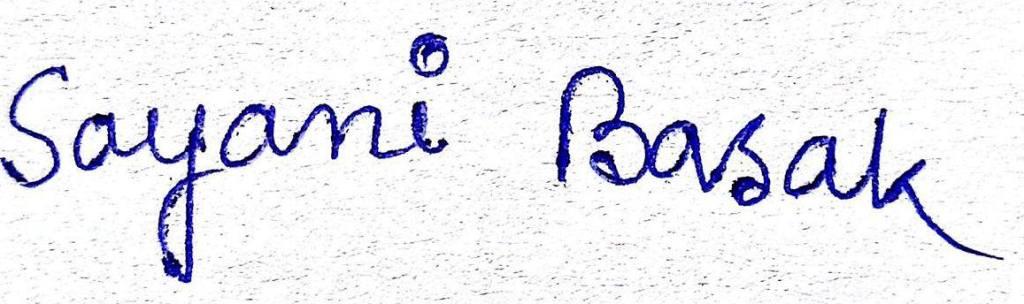 Sayani Basak